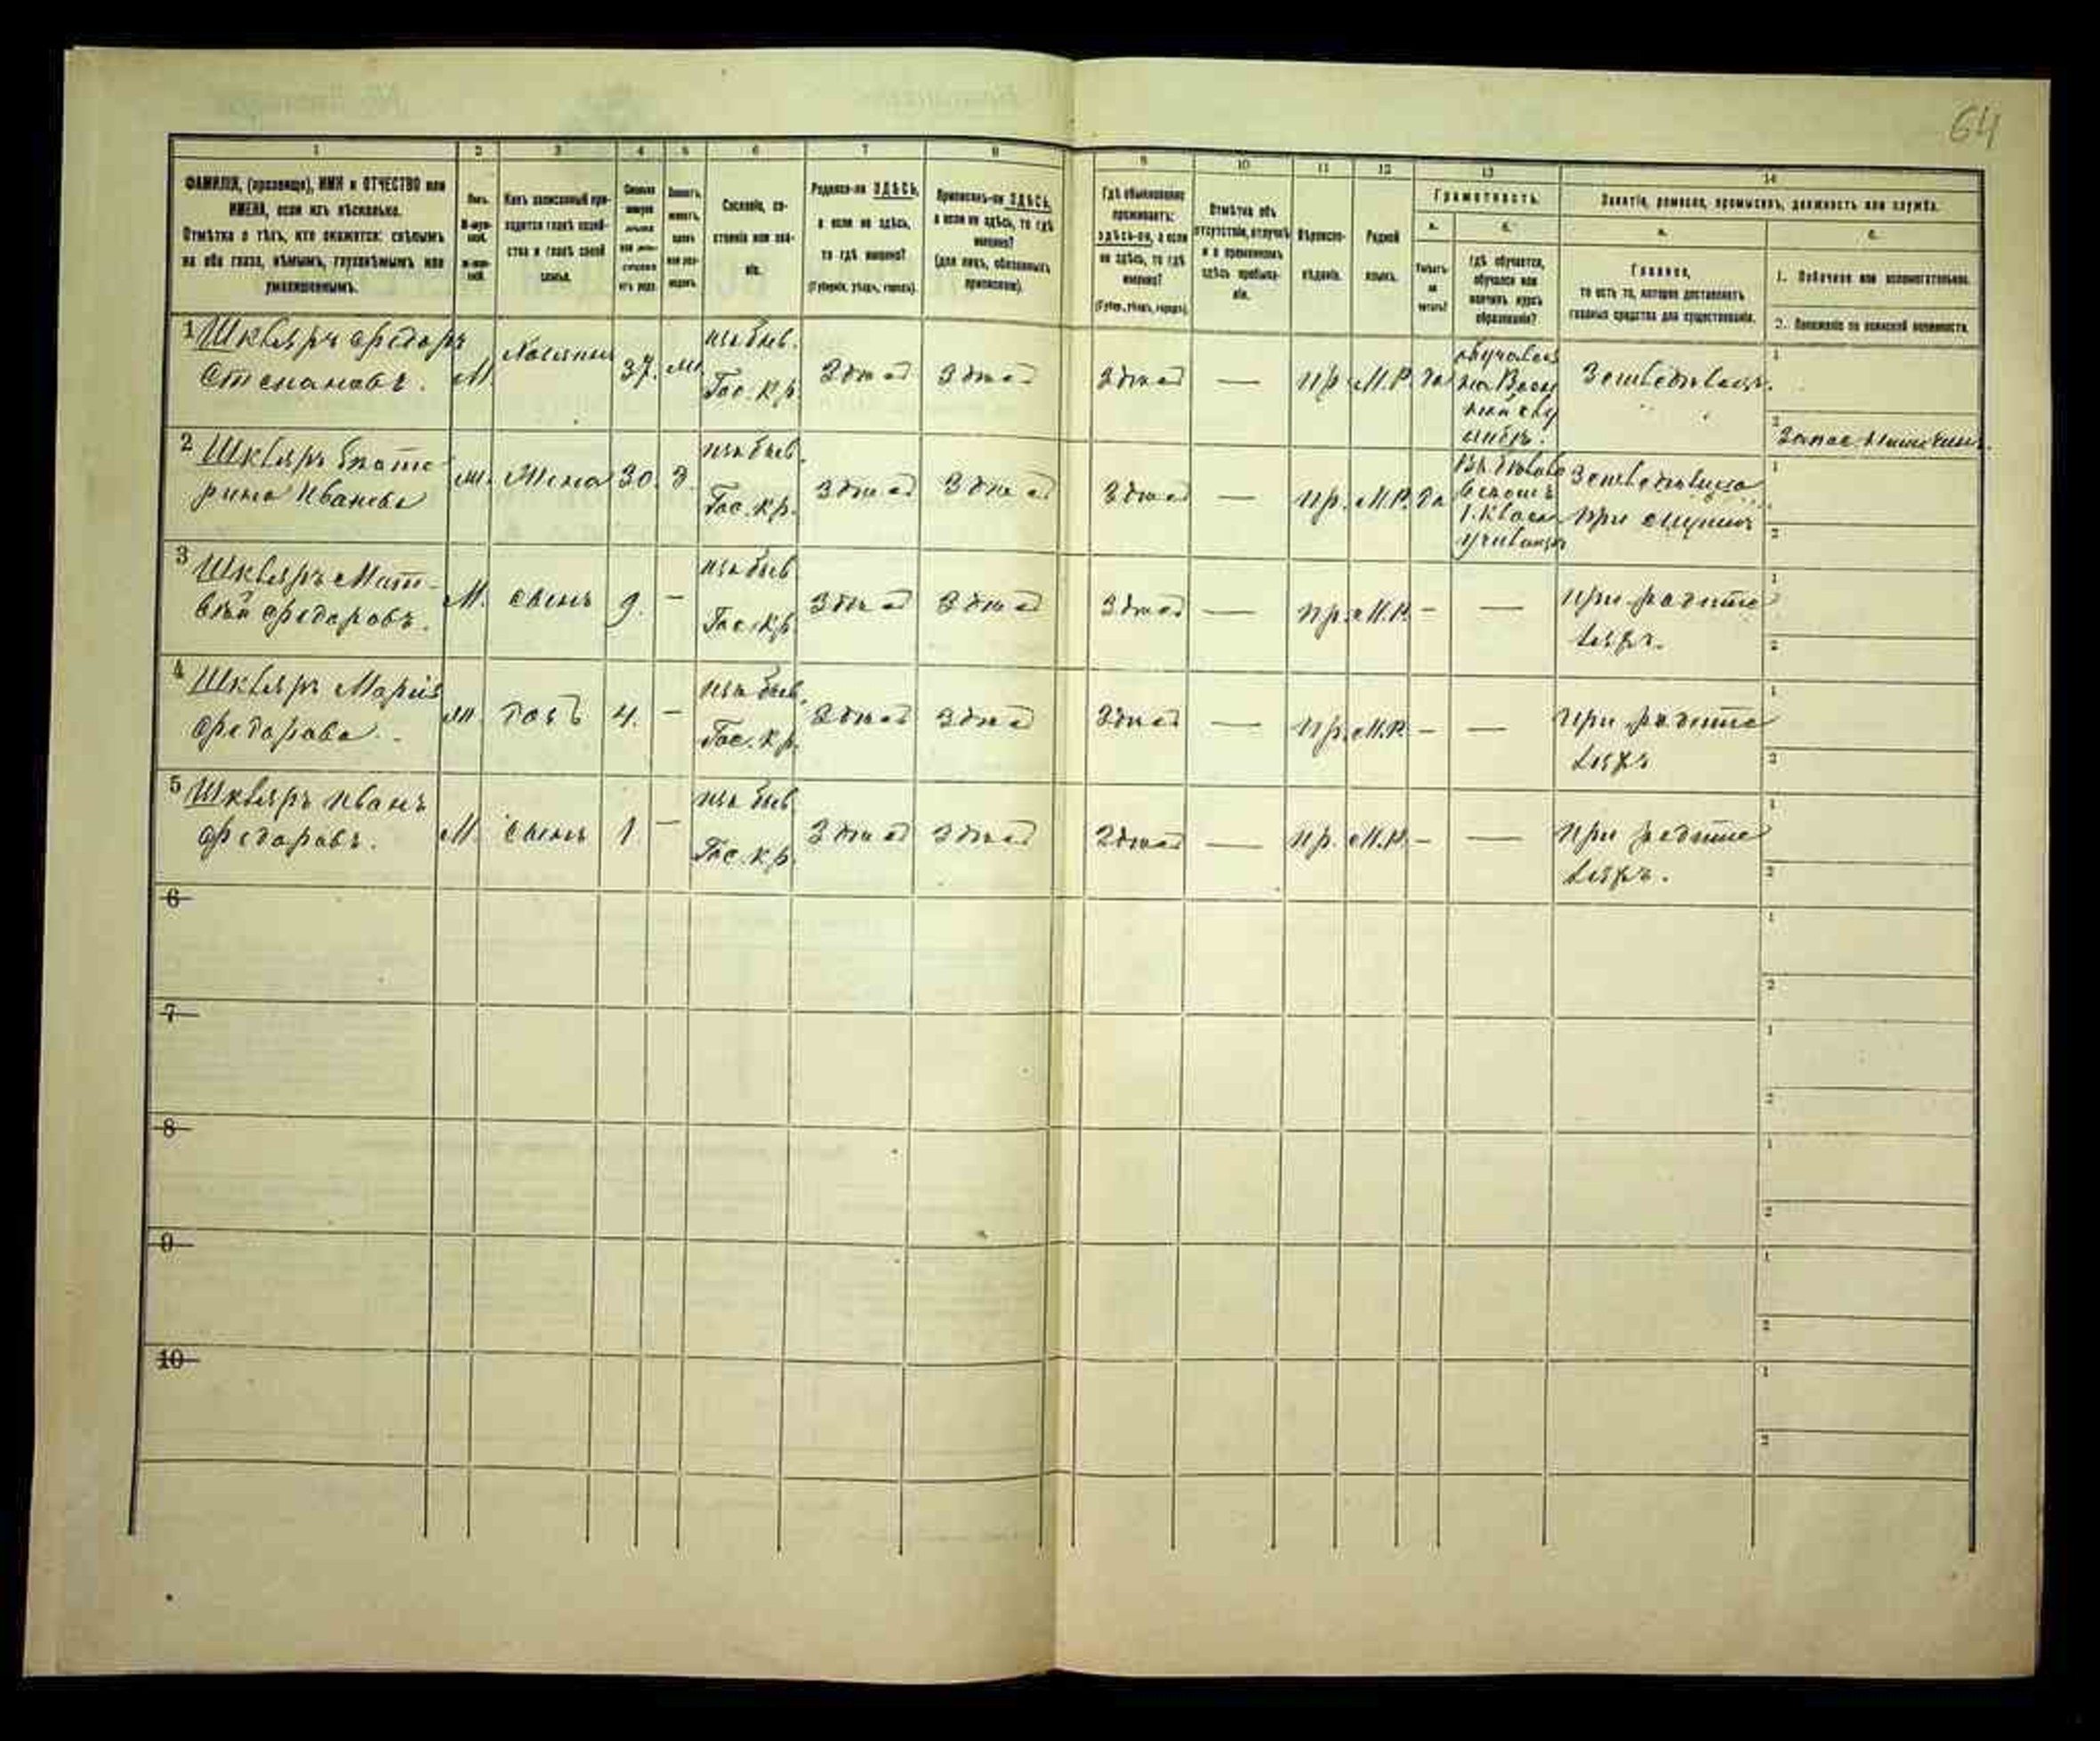 64
1 2 3 4 5 6 7 8 9 10 11 12 13 14
ФАМИЛІЯ, (прозвище), ИМЯ и ОТЧЕСТВО или
ИМЕНА, если ихъ нѣсколько.
Отмѣтка о тѣхъ, кто окажется: слѣпымъ
на оба глаза, нѣмымъ, глухонѣмымъ или
умалишеннымъ.
Полъ.
М-муж-
ской.
Ж-жен-
скій.
Какъ записанный при-
ходится главѣ хозяй-
ства и главѣ своей
семьи.
Сословіе, со-
стояніе или зва-
ніе.
Родился-ли ЗДѢСЬ,
а если не здѣсь,
то гдѣ именно?
(Губернія, уѣздъ, городъ).
Приписанъ-ли ЗДѢСЬ,
а если не здѣсь, то гдѣ
именно?
(для лицъ, обязанныхъ
припискою).
Гдѣ обыкновенно
проживаетъ:
здѣсь-ли, а если
не здѣсь, то гдѣ
именно?
(Губер., уѣздъ, городъ).
Отмѣтка объ
отсутствіи, отлучкѣ
и о временномъ
здѣсь пребыва-
ніи.
Вѣроиспо-
вѣданіе.
Родной
языкъ.
Грамотность.
а.
Умѣетъ-
ли
читать?
б.
Гдѣ обучается,
обучался или
кончилъ курсъ
образованія?
Занятіе, ремесло, промыселъ, должность или служба.
а.
Главное,
то есть то, которое доставляетъ
главныя средства для существованія.
б.
1. Побочное или вспомогательное.
2. Положеніе по воинской повинности.
1 Шкляръ Федоръ
Степановъ.
М. Хозяинъ 37.
изъ быв.
Гос. кр.
Здѣсь Здѣсь Здѣсь — пр. М.Р. да
обучался
на Воен
Земледѣлецъ.
1
2 Запас.
2 Шкляръ Екате-
рина Иванова
ж. Жена 30. З.
изъ быв.
Гос. кр.
Здѣсь Здѣсь Здѣсь — пр. М.Р. да
1. класс
училищѣ
при мужѣ
1
2
3 Шкляръ Мат-
вѣй Федоровъ.
М. сынъ 9. —
изъ быв
Гос. кр.
Здѣсь Здѣсь Здѣсь — пр. М.Р. — —
при родите
ляхъ.
1
2
4 Шкляръ Марія
Федорова.
ж. дочь 4. —
изъ быв.
Гос. кр.
Здѣсь Здѣсь Здѣсь — пр. М.Р. — —
при родите
ляхъ
1
2
5 Шкляръ Иванъ
Федоровъ.
М. сынъ 1. —
изъ быв
Гос. кр.
Здѣсь Здѣсь Здѣсь — пр. М.Р. — —
при родите
ляхъ.
1
2
6
1
2
7
1
2
8
1
2
9
1
2
10
1
2